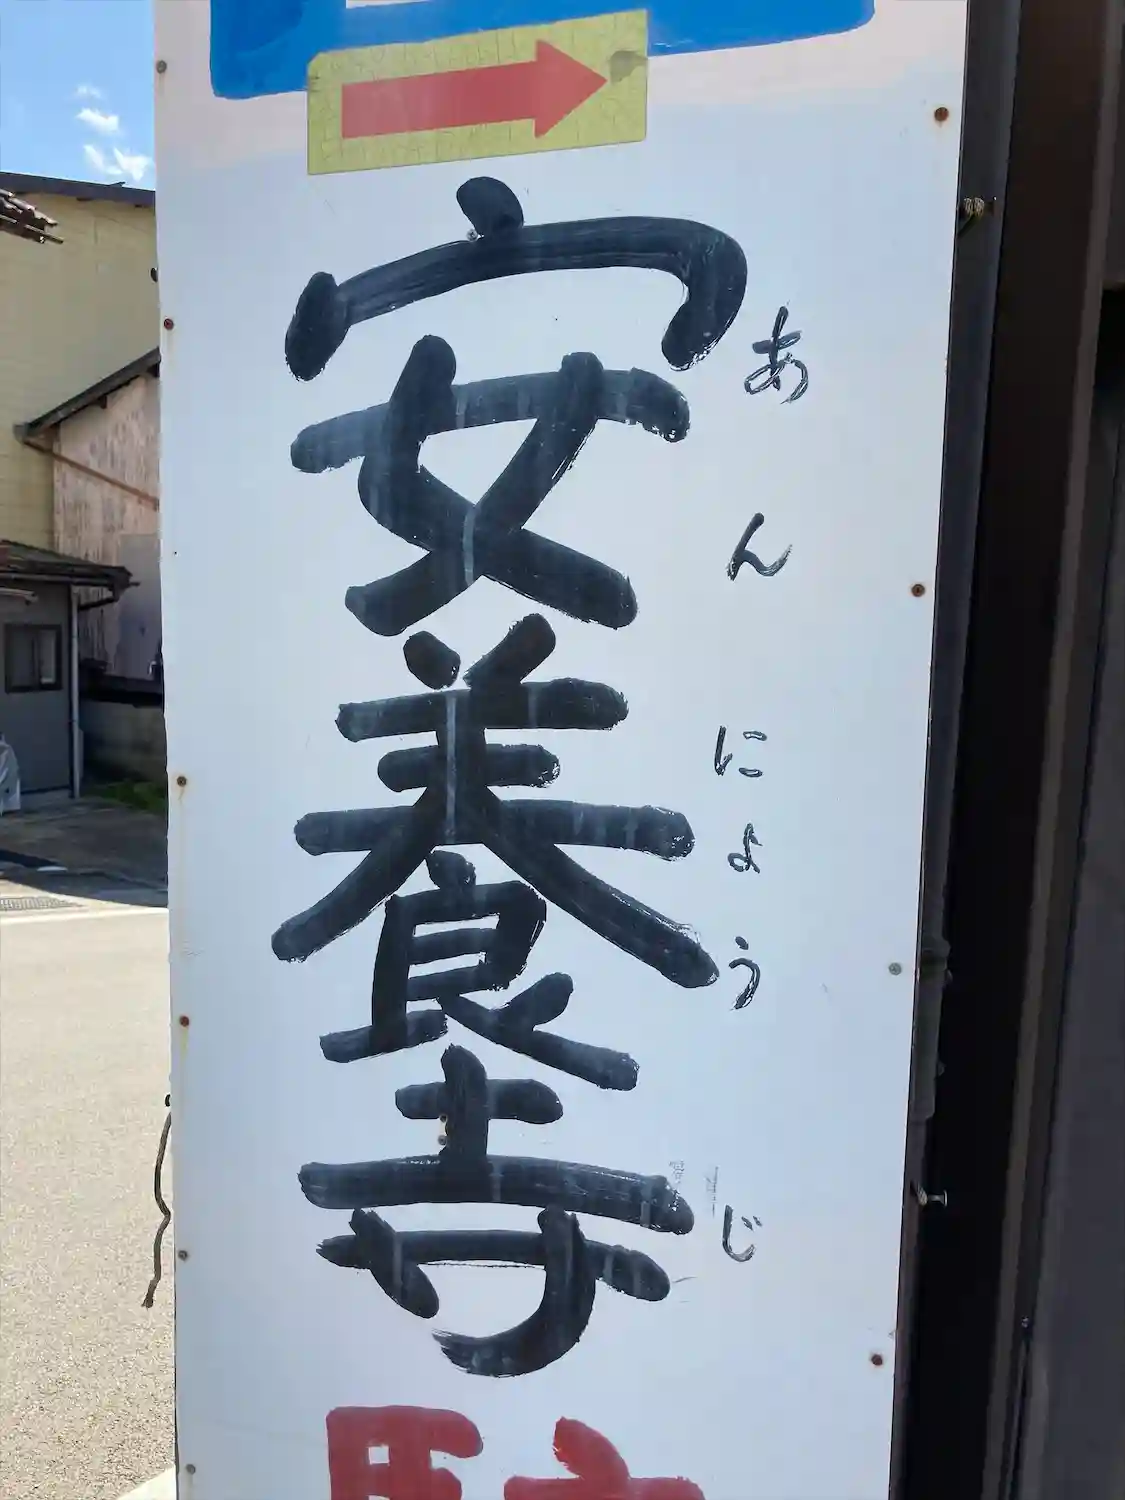 安養寺
あんにょうじ